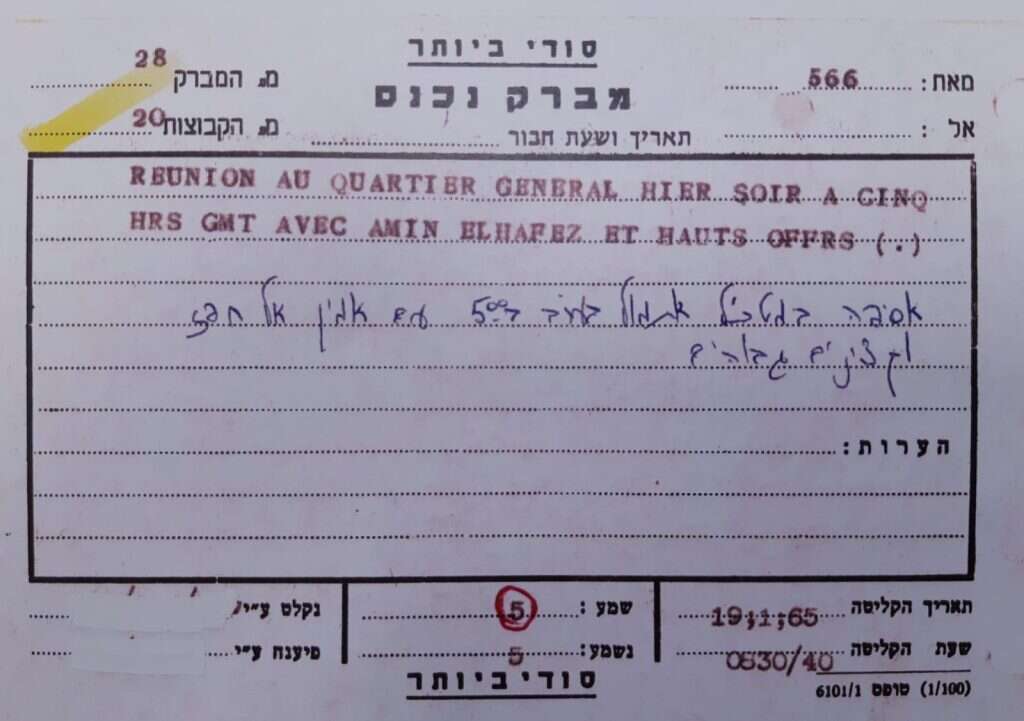 סודי ביותר
מאת: 566 מברק נכנס מ. המברק 28
אל: תאריך ושעת חבור מ. הקבוצות 20
REUNION AU QUARTIER GENERAL HIER SOIR A CINQ
HRS GMT AVEC AMIN ELHAFEZ ET HAUTS OFFRS (.)
אסיפה במטכ"ל אתמול בערב ב-5⁰⁰ עם אמין אל חפז
וקצינים גבוהים
הערות:
תאריך הקליטה 19;1;65 שמע: 5 נקלט ע"י
שעת הקליטה 0830/40 נשמע: 5 פיענח ע"י
סודי ביותר
(1/100) טופס 6101/1